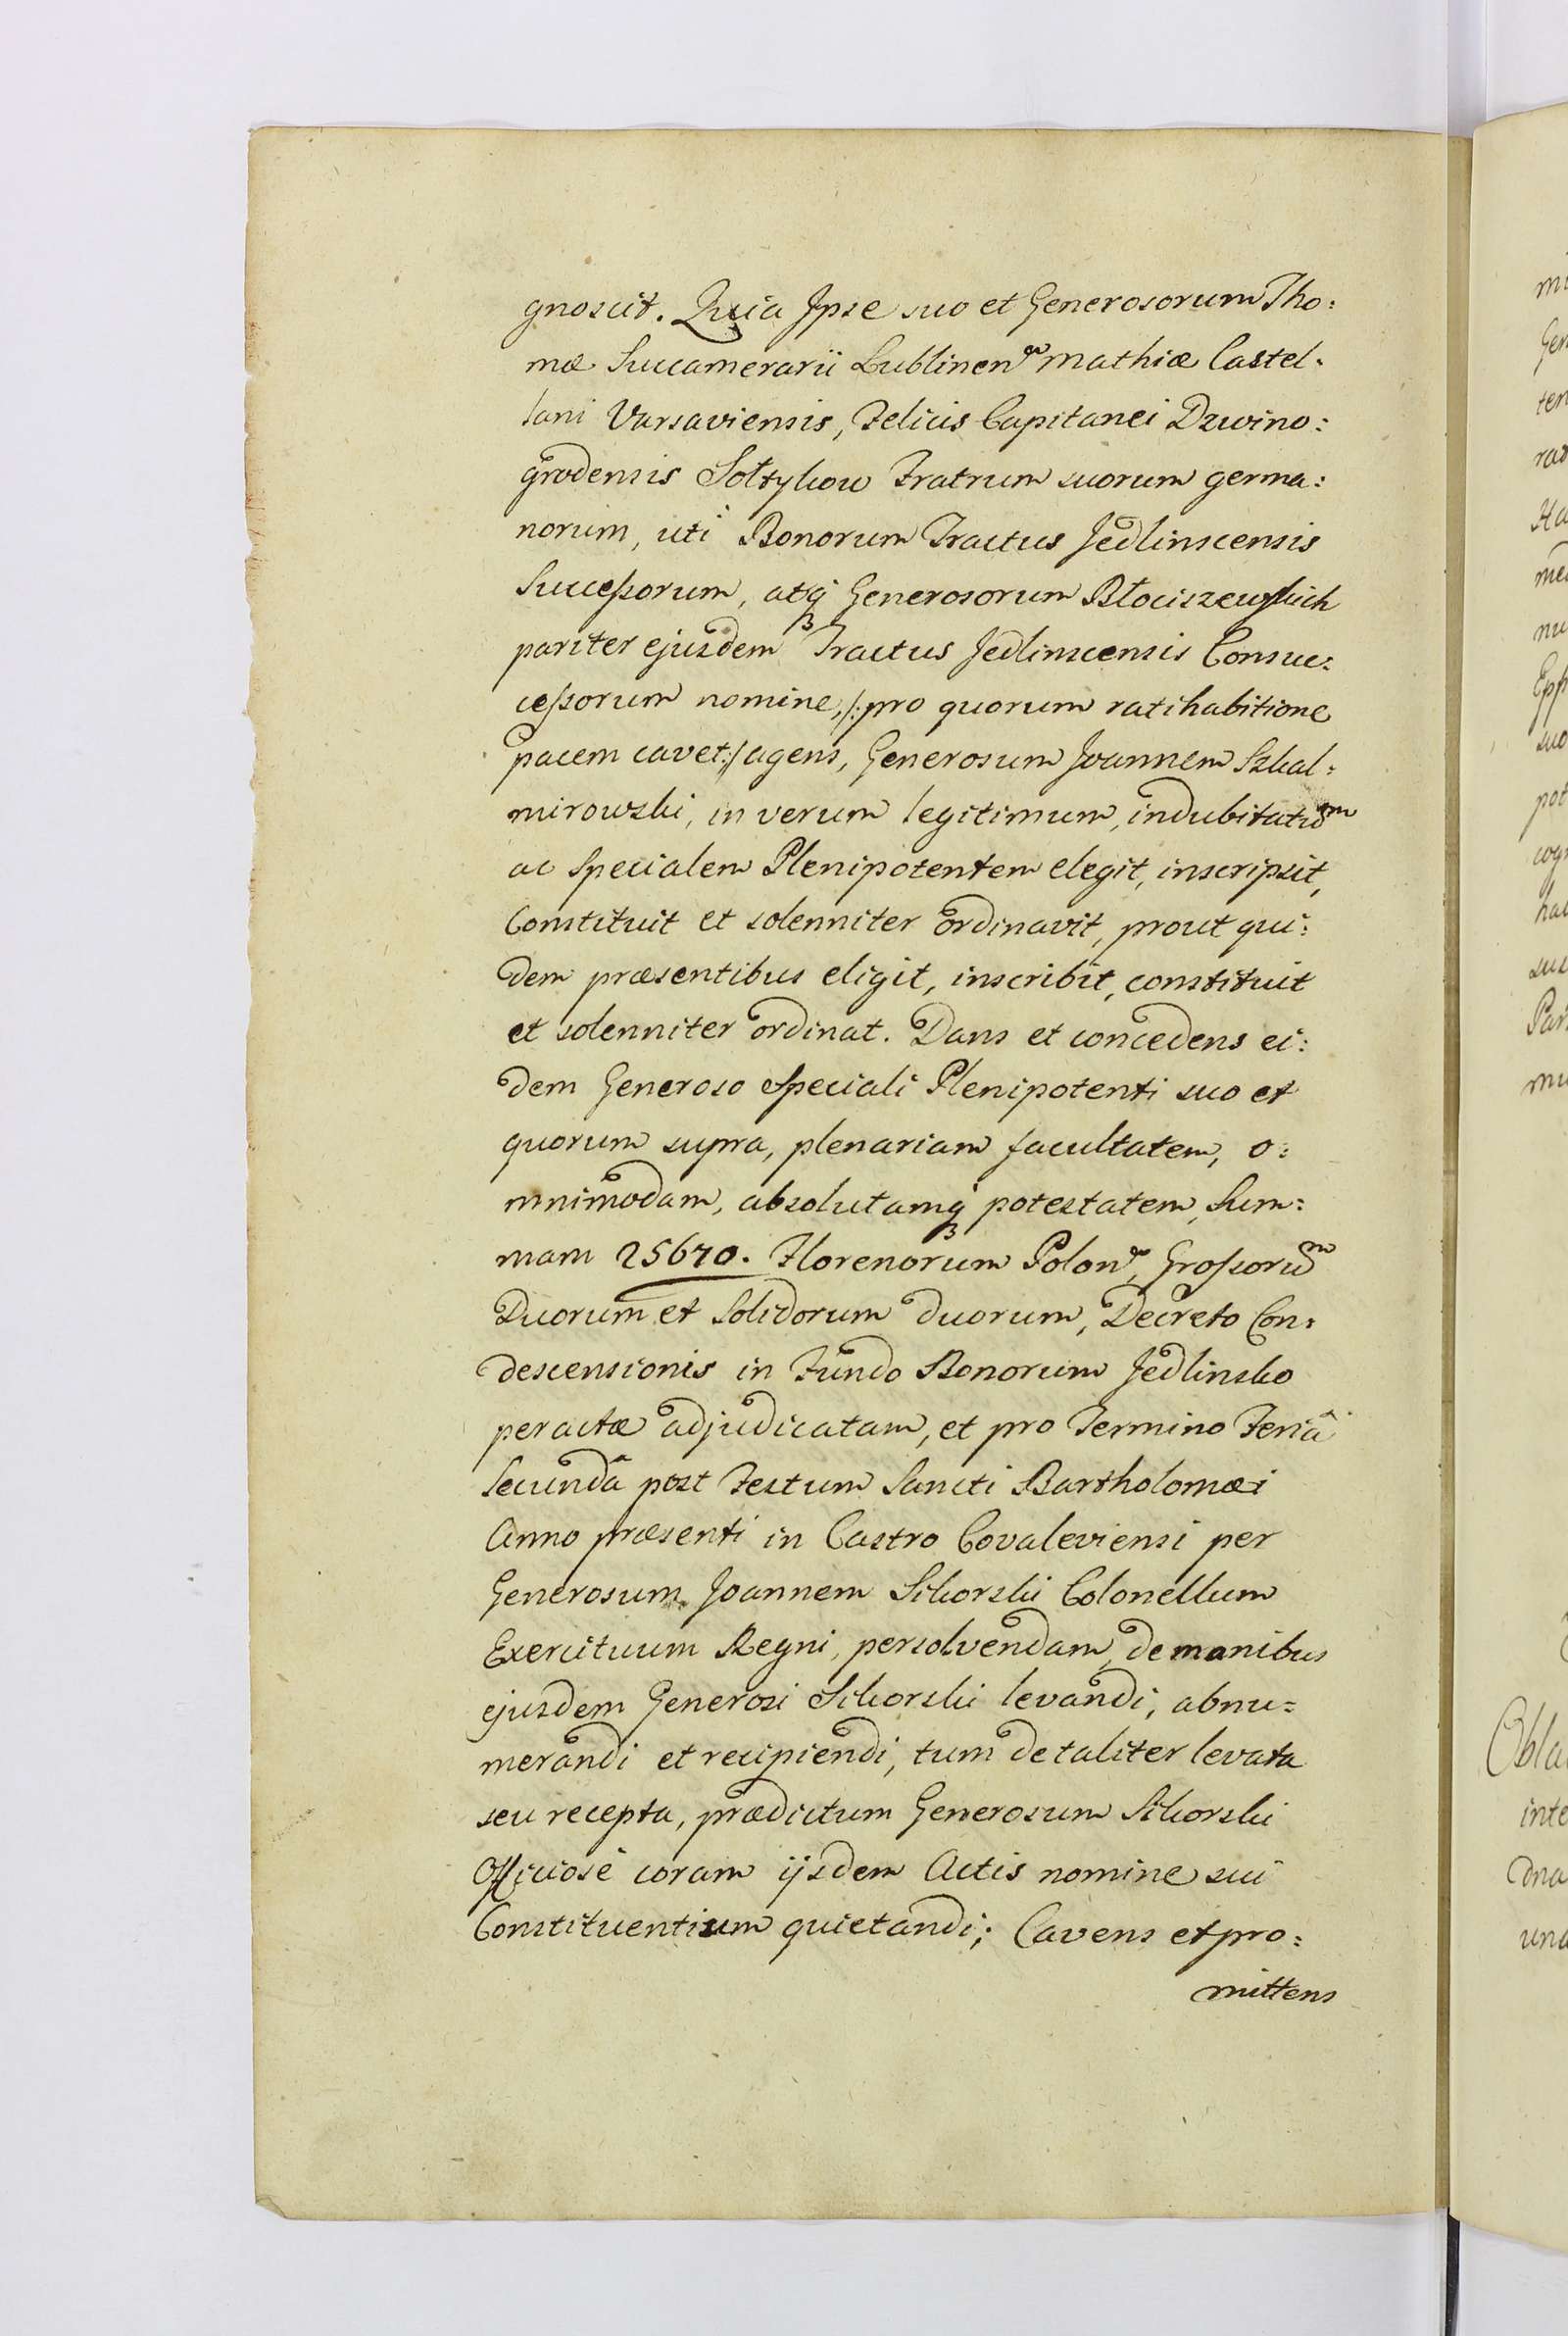 gnoscit. Quia Ipse suo et Generosorum Tho:
mæ Succamerarii Lublinen̄ Mathiæ Castel:
lani Varsaviensis, Felicis Capitanei Dzwino:
grodensis Sołtykow Fratrum suorum germa:
norum, uti Bonorum Tractus Jedlinscensis
Successorum, atq₃ Generosorum Błociszewskich
pariter ejusdem Tractus Jedlinscensis Consuc:
cessorum nomine, /: pro quorum ratihabitione
pacem cavet :/ agens, Generosum Joannem Szkal:
mirowski, in verum legitimum, indubitatum
ac Specialem Plenipotentem elegit, inscripsit,
Constituit et solenniter ordinavit, prout qui:
dem præsentibus eligit, inscribit, constituit
et solenniter ordinat. Dans et concedens ei:
dem Generoso Speciali Plenipotenti suo et
quorum supra, plenariam facultatem, o:
mnimodam, absolutamq₃ potestatem, Sum:
mam 25670. Florenorum Polon̄, Grossorum
Duorum et Solidorum duorum, Decreto Con:
descensionis in Fundo Bonorum Jedlinsko
peractæ adjudicatam, et pro Termino Feriâ
Secundâ post Festum Sancti Bartholomæi
Anno præsenti in Castro Covaleviensi per
Generosum Joannem Sikorski Colonellum
Exercituum Regni, persolvendam, de manibus
ejusdem Generosi Sikorski levandi, abnu:
merandi et recipiendi, tum de taliter levata
seu recepta, prædictum Generosum Sikorski
Officiose coram ijsdem Actis nomine sui
Constituentium quietandi; Cavens et pro:
mittens